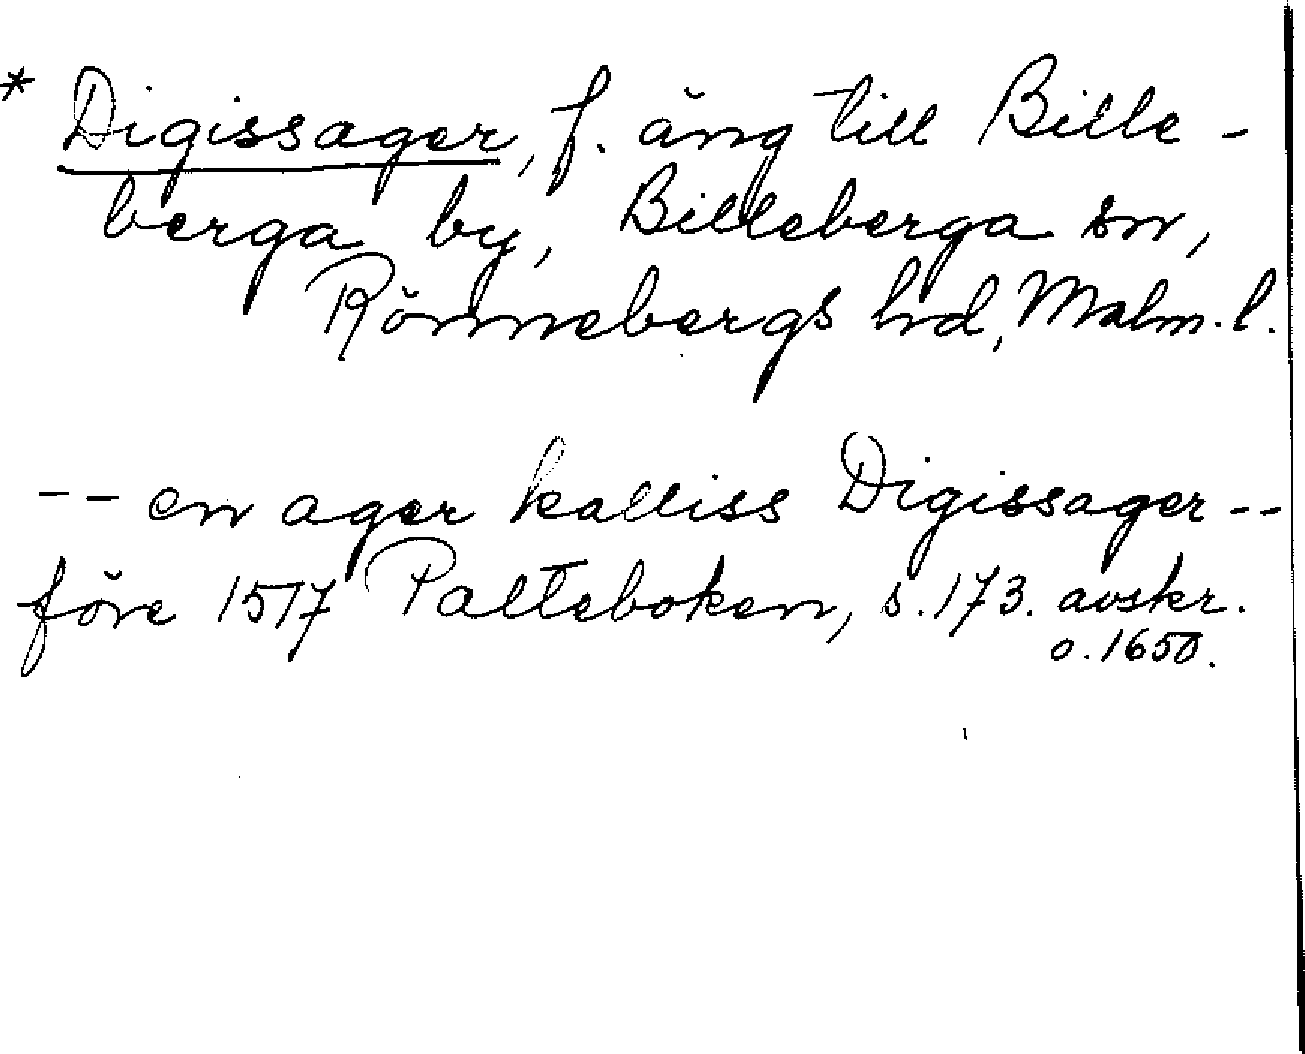 * Digissager, f. äng till Bille-
berga by, Billeberga sn,
Rönnebergs hd, Malm. l.
-- en ager kalliss Digissager --
före 1517 Palteboken, s. 173. avskr.
o. 1650.